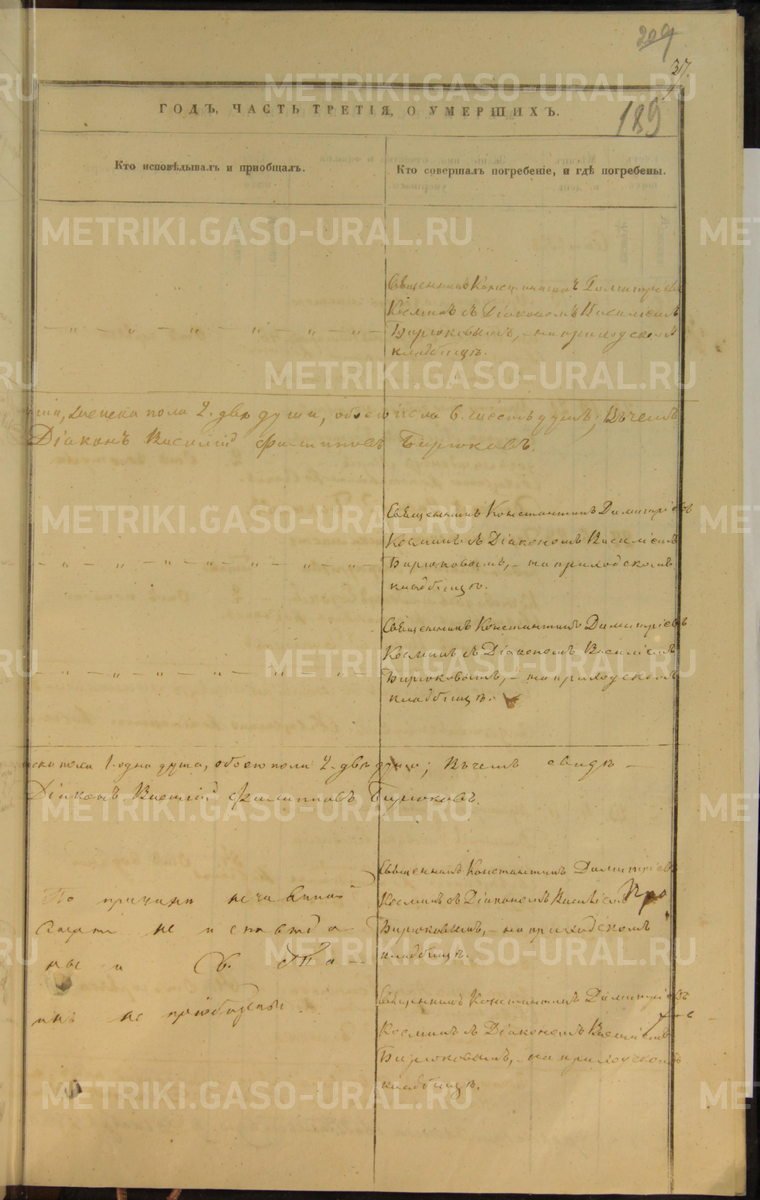 209
37.
189
ГОДЪ, ЧАСТЬ ТРЕТІЯ, О УМЕРШИХЪ.
Кто исповѣдывалъ и пріобщалъ.
Кто совершалъ погребеніе, и гдѣ погребены.
METRIKI.GASO-URAL.RU
Священникъ Константинъ Димитріевъ
Косминъ съ Діакономъ Василіемъ
Бирюковымъ, – на приходскомъ
кладбищѣ.
женска пола 2. двѣ души, обоего пола 6. шесть душъ; Въ чемъ
Діаконъ Василій Филипповъ Бирюковъ.
Священникъ Константинъ Димитріевъ
Косминъ съ Діакономъ Василіемъ
Бирюковымъ, – на приходскомъ
кладбищѣ.
Священникъ Константинъ Димитріевъ
Косминъ съ Діакономъ Василіемъ
Бирюковымъ, – на приходскомъ
кладбищѣ.
пола 1. одна душа, обоего пола 2. двѣ души; Въ чемъ свидѣ –
Діаконъ Василій Филипповъ Бирюковъ.
По причинѣ нечаянной
смерти не исповѣда
ны и Св. Та –
инъ не пріобщены.
Священникъ Константинъ Димитріевъ
Косминъ съ Діакономъ Василіемъ
Бирюковымъ, – на приходскомъ
кладбищѣ.
Священникъ Константинъ Димитріевъ
Косминъ съ Діакономъ Василіемъ
Бирюковымъ, – на приходскомъ
кладбищѣ.